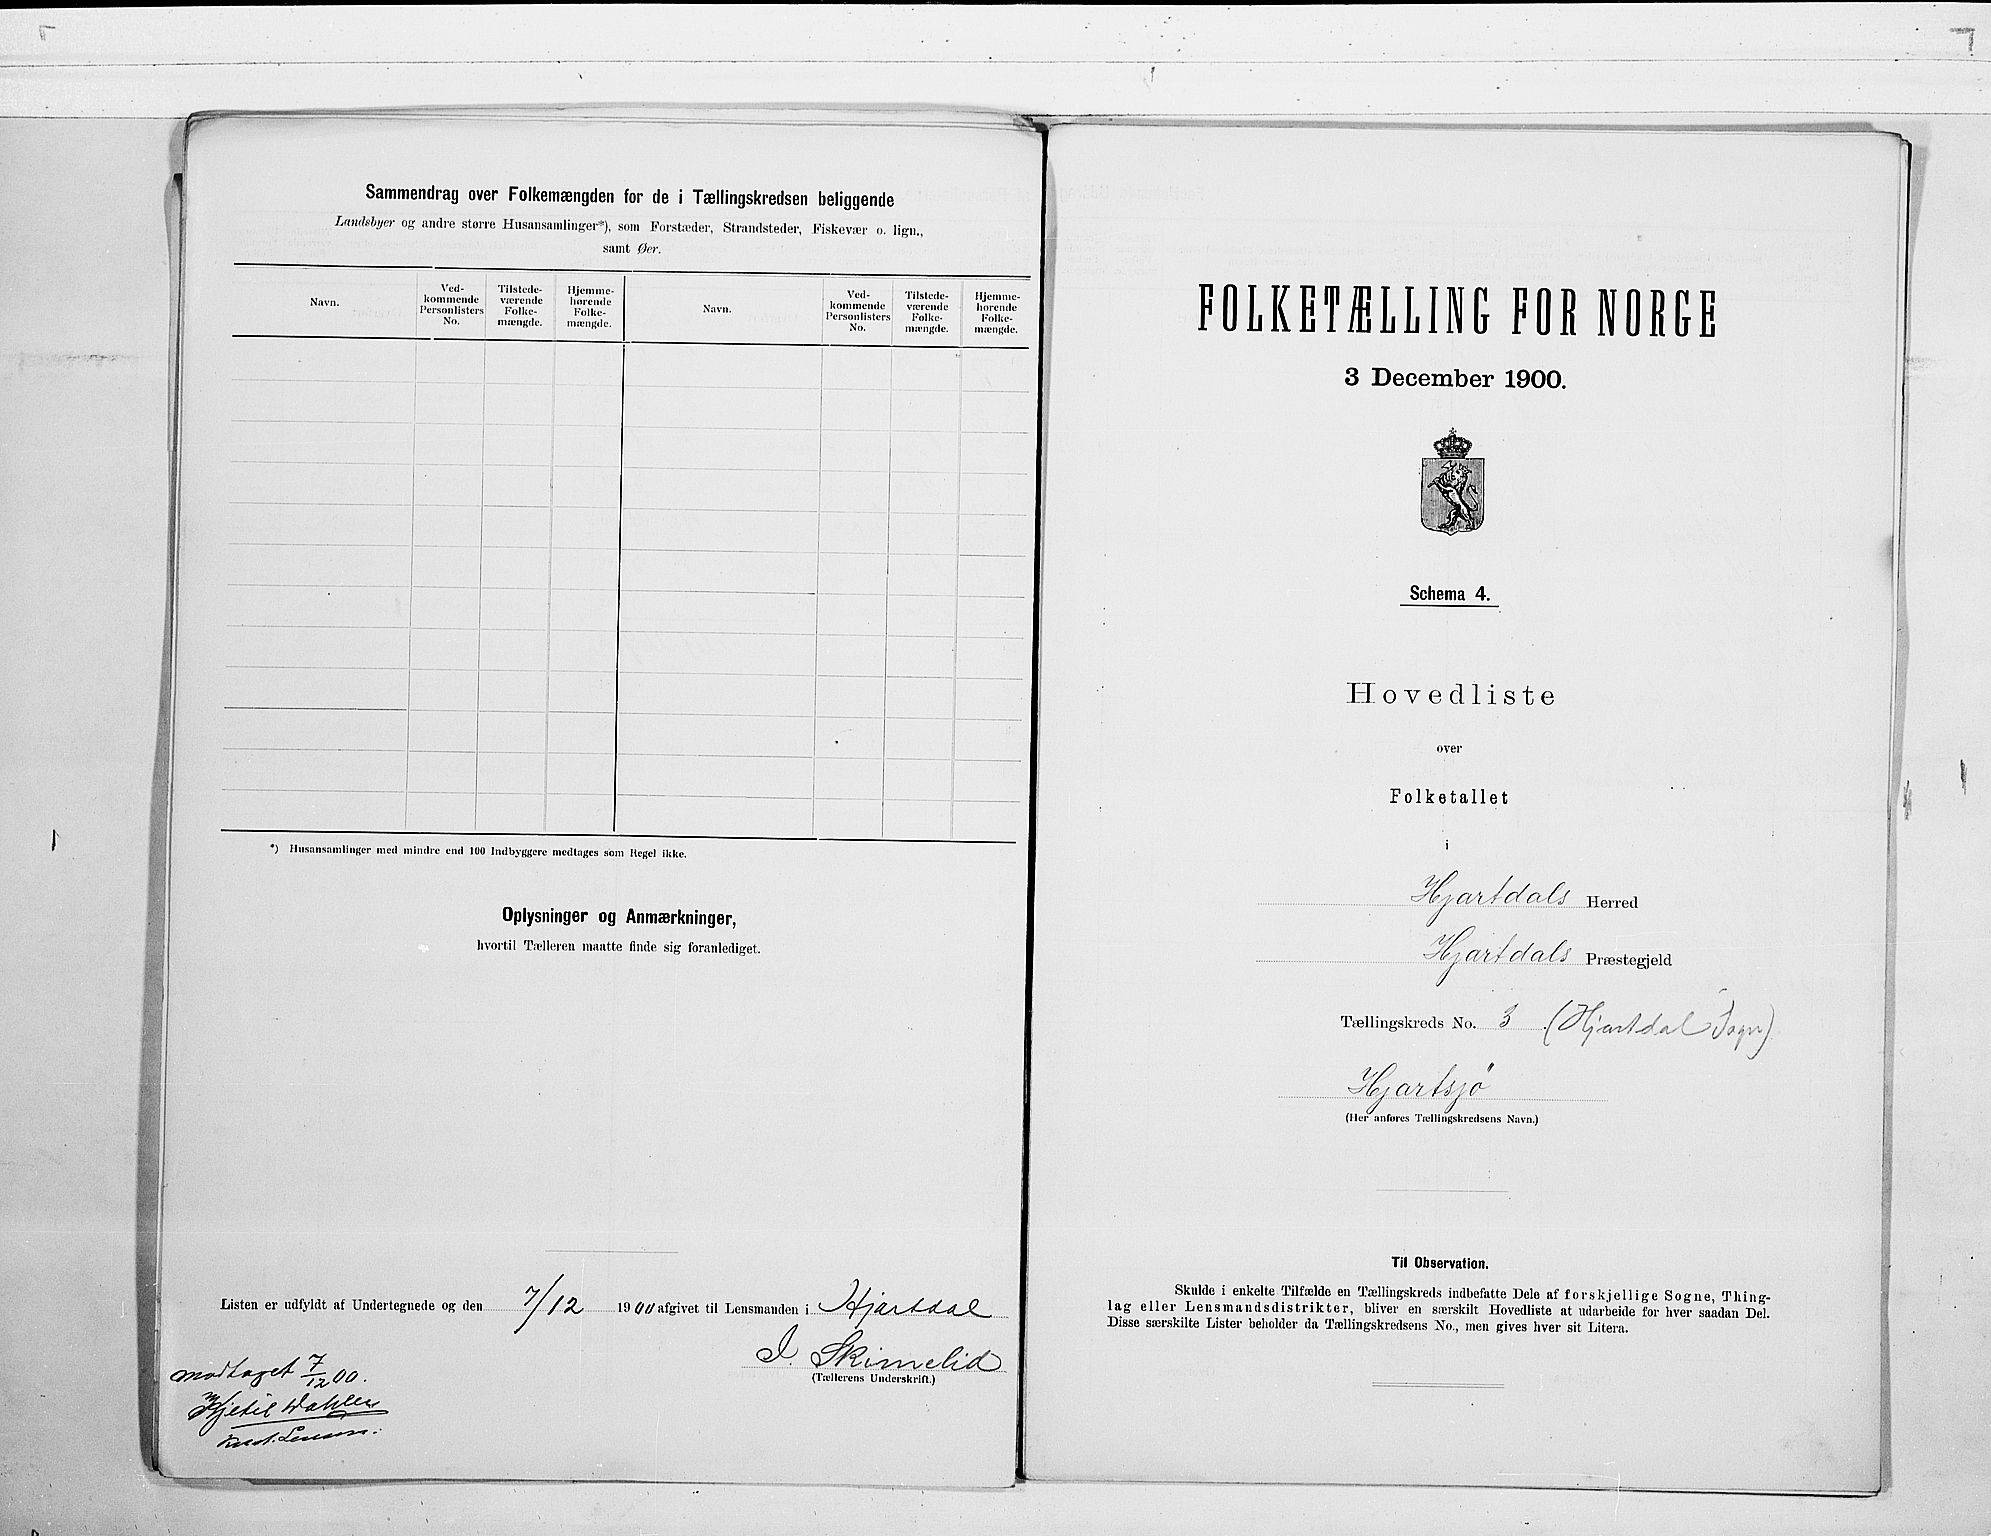 Sammendrag over Folkemængden for de i Tællingskredsen beliggende
Landsbyer og andre større Husansamlinger*), som Forstæder, Strandsteder, Fiskevær o. lign.,
samt Øer.
Navn.
Ved-
kommende
Personlisters
No.
Tilstede-
værende
Folke-
mængde.
Hjemme-
hørende
Folke-
mængde.
Navn.
Ved-
kommende
Personlisters
No.
Tilstede-
værende
Folke-
mængde.
Hjemme-
hørende
Folke-
mængde.
*) Husansamlinger med mindre end 100 Indbyggere medtages som Regel ikke.
Oplysninger og Anmærkninger,
hvortil Tælleren maatte finde sig foranlediget.
Listen er udfyldt af Undertegnede og den 7/12 1900 afgivet til Lensmanden i Hjartdal
I. Skimelid
(Tællerens Underskrift.)
modtaget 7/12 00.
Kjetil Dahlen
FOLKETÆLLING FOR NORGE
3 December 1900.
Schema 4.
Hovedliste
over
Folketallet
i
Hjartdals Herred
Hjartdals Præstegjeld
Tællingskreds No. 3 (Hjartdal Sogn)
Hjartsjö
(Her anføres Tællingskredsens Navn.)
Til Observation.
Skulde i enkelte Tilfælde en Tællingskreds indbefatte Dele af forskjellige Sogne, Thing-
lag eller Lensmandsdistrikter, bliver en særskilt Hovedliste at udarbeide for hver saadan Del.
Disse særskilte Lister beholder da Tællingskredsens No., men gives hver sit Litera.